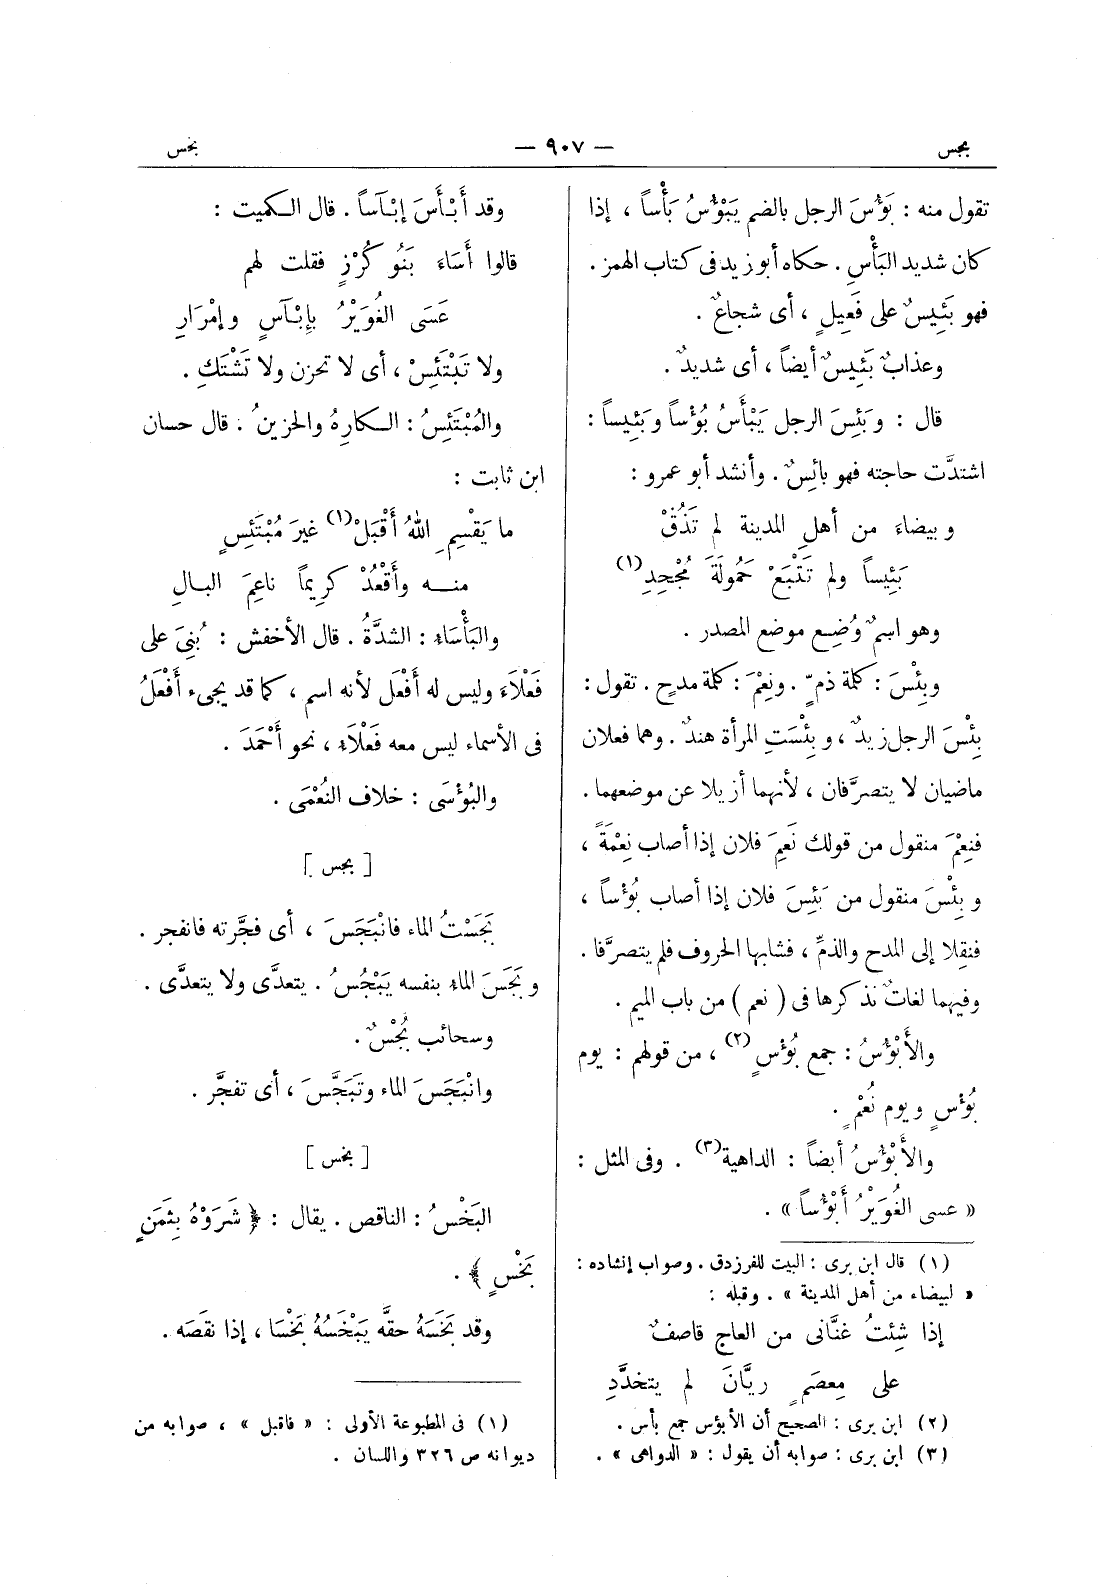 بجس
— ٩٠٧ —
بخس
تقول منه : بَؤُسَ الرجل بالضم يَبْؤُسُ بَأْساً ، إذا
كان شديد البَأْسِ . حكاه أبو زيد فى كتاب الهمز .
فهو بَئِيسٌ على فَعِيلٍ ، أى شجاعٌ .
وعذابٌ بَئِيسٌ أيضاً ، أى شديدٌ .
قال : وبَئِسَ الرجل يَبْأَسُ بُؤْساً وبَئِيساً :
اشتدَّت حاجته فهو بائِسٌ . وأنشد أبو عمرو :
وبيضاءَ من أهلِ المدينة لم تَذُقْ
بَئِيساً ولم تَتْبَعْ حَمُولَةَ مُجْحِدِ (١)
وهو اسمٌ وُضِع موضع المصدر .
وبِئْسَ : كلمة ذمٍّ . ونِعْمَ : كلمة مدحٍ . تقول :
بِئْسَ الرجل زيدٌ ، وبِئْسَتِ المرأة هندٌ . وهما فعلان
ماضيان لا يتصرَّفان ، لأنهما أزيلا عن موضعهما .
فنِعْمَ منقول من قولك نَعِمَ فلان إذا أصاب نِعْمَةً ،
وبِئْسَ منقول من بَئِسَ فلان إذا أصاب بُؤْساً ،
فنقِلا إلى المدح والذمِّ ، فشابها الحروف فلم يتصرَّفا .
وفيهما لغاتٌ نذكرها فى ( نعم ) من باب الميم .
والأَبْؤُسُ : جمع بُؤْسٍ (٢) ، من قولهم : يوم
بُؤْسٍ ويوم نُعْمٍ .
والأَبْؤُسُ أيضاً : الداهية (٣) . وفى المثل :
« عسى الغُوَيْرُ أَبْؤُساً » .
(١) قال ابن برى : البيت للفرزدق . وصواب إنشاده :
« لبيضاء من أهل المدينة » . وقبله :
إذا شِئتُ غنَّانى من العاج قاصفٌ
على مِعصَمٍ ريَّانَ لم يتخدَّدِ
(٢) ابن برى : الصحيح أن الأبؤس جمع بأس .
(٣) ابن برى : صوابه أن يقول : « الدواهى » .
وقد أَبْأَسَ إبْآساً . قال الكميت :
قالوا أَسَاءَ بَنُو كُرْزٍ فقلت لهم
عَسَى الغُوَيْرُ بِإِبْآسٍ وإمْرَارِ
ولا تَبْتَئِسْ ، أى لا تحزن ولا تَشْتَكِ .
والمُبْتَئِسُ : الكارهُ والحزينُ . قال حسان
ابن ثابت :
ما يَقْسِمِ اللهُ أَقْبَلْ (١) غيرَ مُبْتَئِسٍ
منه وأَقْعُدْ كريمًا ناعِمَ البالِ
والبَأْسَاءُ : الشدَّةُ . قال الأخفش : بُنِىَ على
فَعْلَاءَ وليس له أَفْعَل لأنه اسم ، كما قد يجىء أَفْعَلُ
فى الأسماء ليس معه فَعْلَاءُ ، نحو أَحْمَدَ .
والبُؤْسَى : خلاف النُعْمَى .
[ بجس ]
بَجَسْتُ الماء فانْبَجَسَ ، أى فجَّرته فانفجر .
وبَجَسَ الماءُ بنفسه يَبْجُسُ . يتعدَّى ولا يتعدَّى .
وسحائب بُجْسٌ .
وانْبَجَسَ الماء وتَبَجَّسَ ، أى تفجَّر .
[ بخس ]
البَخْسُ : الناقص . يقال : ﴿ شَرَوْهُ بِثَمَنٍ
بَخْسٍ ﴾ .
وقد بَخَسَهُ حقَّه يَبْخَسُهُ بَخْسَا ، إذا نقصَه .
(١) فى المطبوعة الأولى : « فاقبل » ، صوابه من
ديوانه ص ٣٢٦ واللسان .